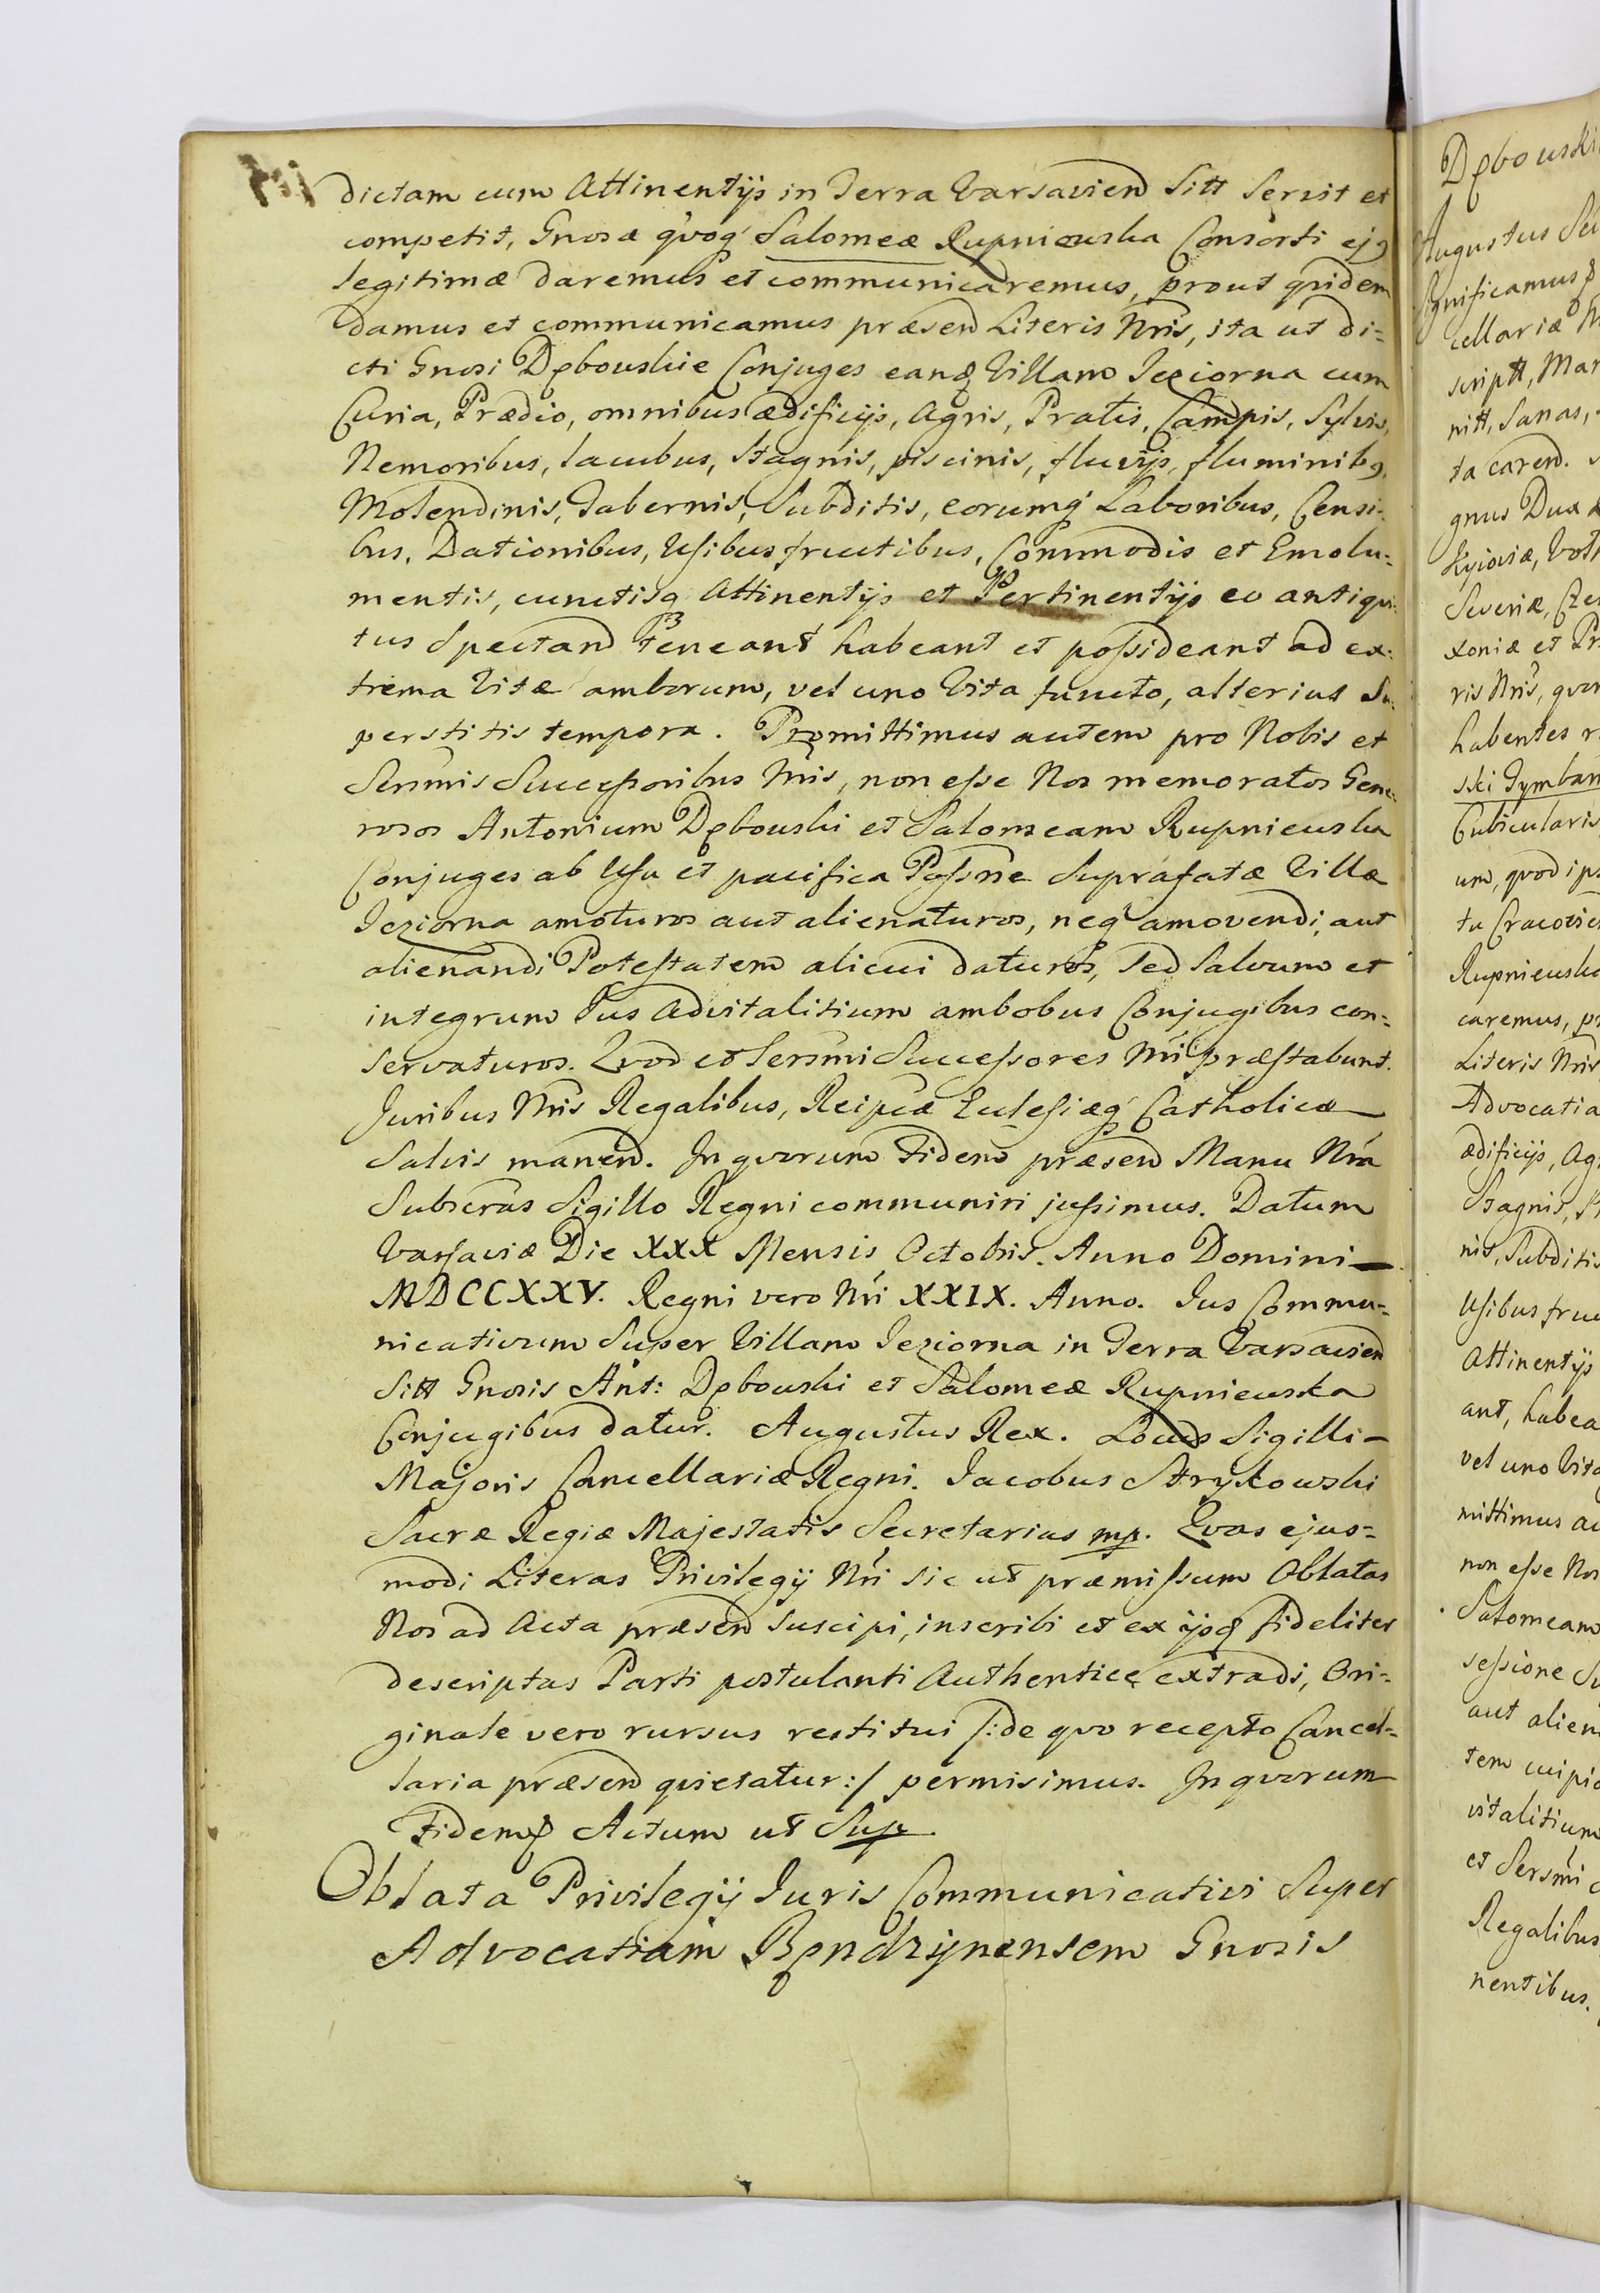 dictam cum Attinentijs in Terra Varsavien Sitt Servit et
competit, Gnosæ qvoq' Salomeæ Rupniewska Consorti ej9
legitimæ daremus et communicaremus, prout qvidem
damus et communicamus præsen Literis Nris, ita ut di=
cti Gnosi Dębowskie Conjuges eand Villam Jeziorna cum
Curia, Prædio, omnibus ædificijs, Agris, Pratis, Campis, Sylvis,
Nemoribus, lacubus, Stagnis, piscinis, fluvijs, fluminib9,
Molendinis, Tabernis, Subditis, eorumq' Laboribus, Censi=
bus, Dationibus, Usibus fructibus, Commodis et Emolu=
mentis, cunctisq Attinentijs et Pertinentijs eo antiqvi=
tus Spectand teneant habeant et possideant ad ex=
trema Vitæ amborum, vel uno Vita functo, alterius Su=
perstitis tempora. Promittimus autem pro Nobis et
Sermis Successoribus Nris, non esse Nos memoratos Gene=
rosos Antonium Dębowski et Salomeam Rupniewska
Conjuges ab Usu et pacifica Possne Suprafatæ Villæ
Jeziorna amoturos aut alienaturos, neq' amovendi, aut
alienandi Potestatem alicui daturos, Sed Salvum et
integrum Jus Advitalitium ambobus Conjugibus con=
servaturos. Qvod et Sersmi Successores Nri præstabunt.
Juribus Nris Regalibus, Reipcæ Eclesiæq' Catholicæ
Salvis manen. In qvorum Fidem præsen Manu Nra
Subscras Sigillo Regni communiri jussimus. Datum
Varsaviæ Die XXX Mensis Octobris. Anno Domini
MDCCXXV. Regni vero Nri XXIX. Anno. Jus Commu=
nicativum Super Villam Jeziorna in Terra Varsavien
Sitt Gnosis Ant: Dębowski et Salomeæ Rupniewska
Conjugibus datur. Augustus Rex. Locus Sigilli
Majoris Cancellariæ Regni. Jacobus Strykowski
Sacræ Regiæ Majestatis Secretarius mp. Qvas ejus=
modi Literas Privilegij Nri sic ut præmissum Oblatas
Nos ad Acta præsen suscipi, inscribi et ex ijsd fideliter
descriptas Parti postulanti Authentice extradi, Ori=
ginale vero rursus restitui /:de qvo recepto Cancel=
laria præsen qvietatur:/ permisimus. In qvorum
Fidem Actum ut Sup
Oblata Privilegij Juris Communicativi Super
Advocatiam Będzijnensem Gnosis
Dębowski
Augustus
significamus
cellariæ
scriptt, Mar
nitt, Sanas,
ta caren.
gnus Dux
Kyioviæ,
Severiæ,
xoniæ et
ris Nris,
habentes
ski Tymbar
Cubiculario
um, qvod ips
tu Cracovien
Rupniewska
caremus, pr
Literis Nris
Advocatia
ædificijs, Ag
Stagnis,
nis, Subditis
Usibus fruc
Attinentijs
ant, habea
vel uno Vita
mittimus au
non esse Nos
Salomeam
sessione Su
aut alien
tem cuipia
vitalitium
et Sersmi
Regalibus
nentibus.